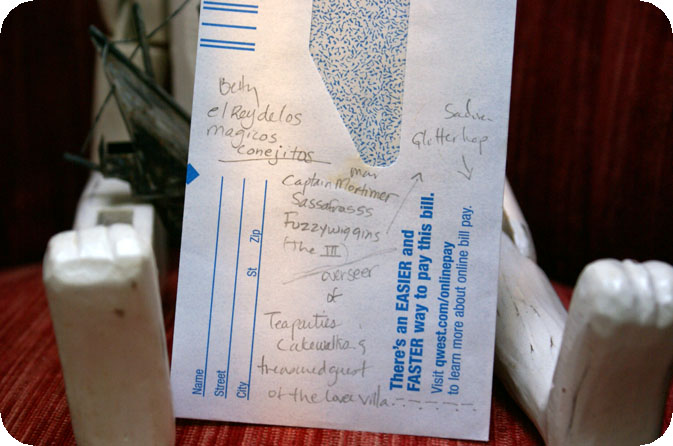 Betty
el Rey de los
magicos
conejitos
Captain Mortimer
Sassafrasss
Fuzzywiggins
(the III)
overseer
of
Teaparties
Cakewalks
treasured guest
of the
villa
Glitterhop
Name
Street
City St Zip
There's an EASIER and
FASTER way to pay this bill.
Visit qwest.com/onlinepay
to learn more about online bill pay.